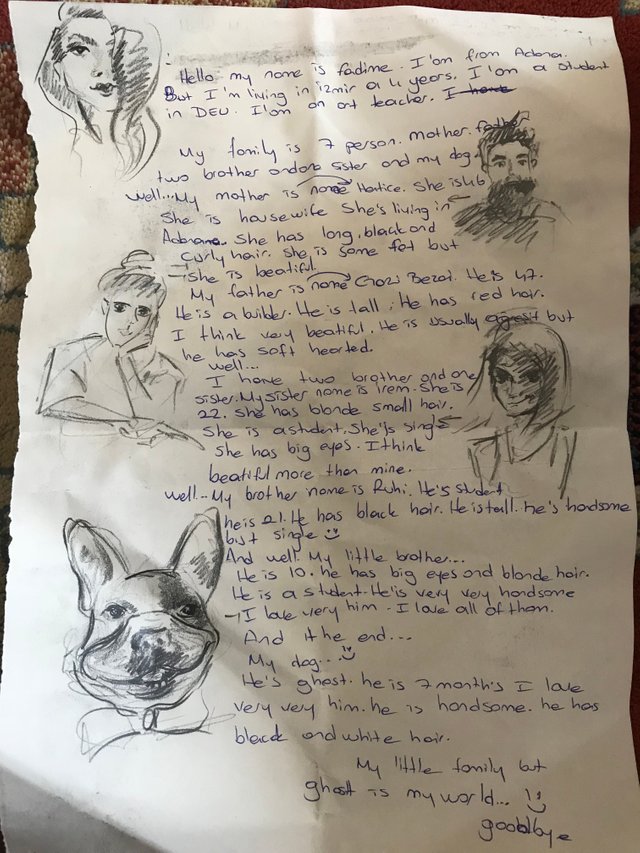 Hello my name is fadime. I'am from Adana.
But I'm living in izmir a 4 years. I'am a student
in DEU. I'am an art teacher. I have
My family is 7 person. mother. father
two brother and one sister and my dog.
well... My mother is name Hatice. She is 46
She is housewife She's living in
Adana. She has long, black and
curly hair. She is some fat but
She is beatiful.
My father is name Gazi Bezat. He is 47.
He is a builder. He is tall. He has red hair.
I think very beatiful. He is usually agresif but
he has soft hearted.
well...
I have two brother and one
sister. My sister name is irem. She is
22. she has blonde small hair.
She is a student. She'js single
she has big eyes. I think
beatiful more then mine.
well... My brother name is Ruhi. He's student
he is 21. He has black hair. He is tall. he's handsome
but single
And well My little brother...
He is 10. he has big eyes and blonde hair.
He is a student. He is very very handsome
I love very him. I love all of them.
And it he end...
My dog...
He's ghost. he is 7 month's I love
very very him. he is handsome. he has
black and white hair.
My little family but
ghost is my world...
goodbye